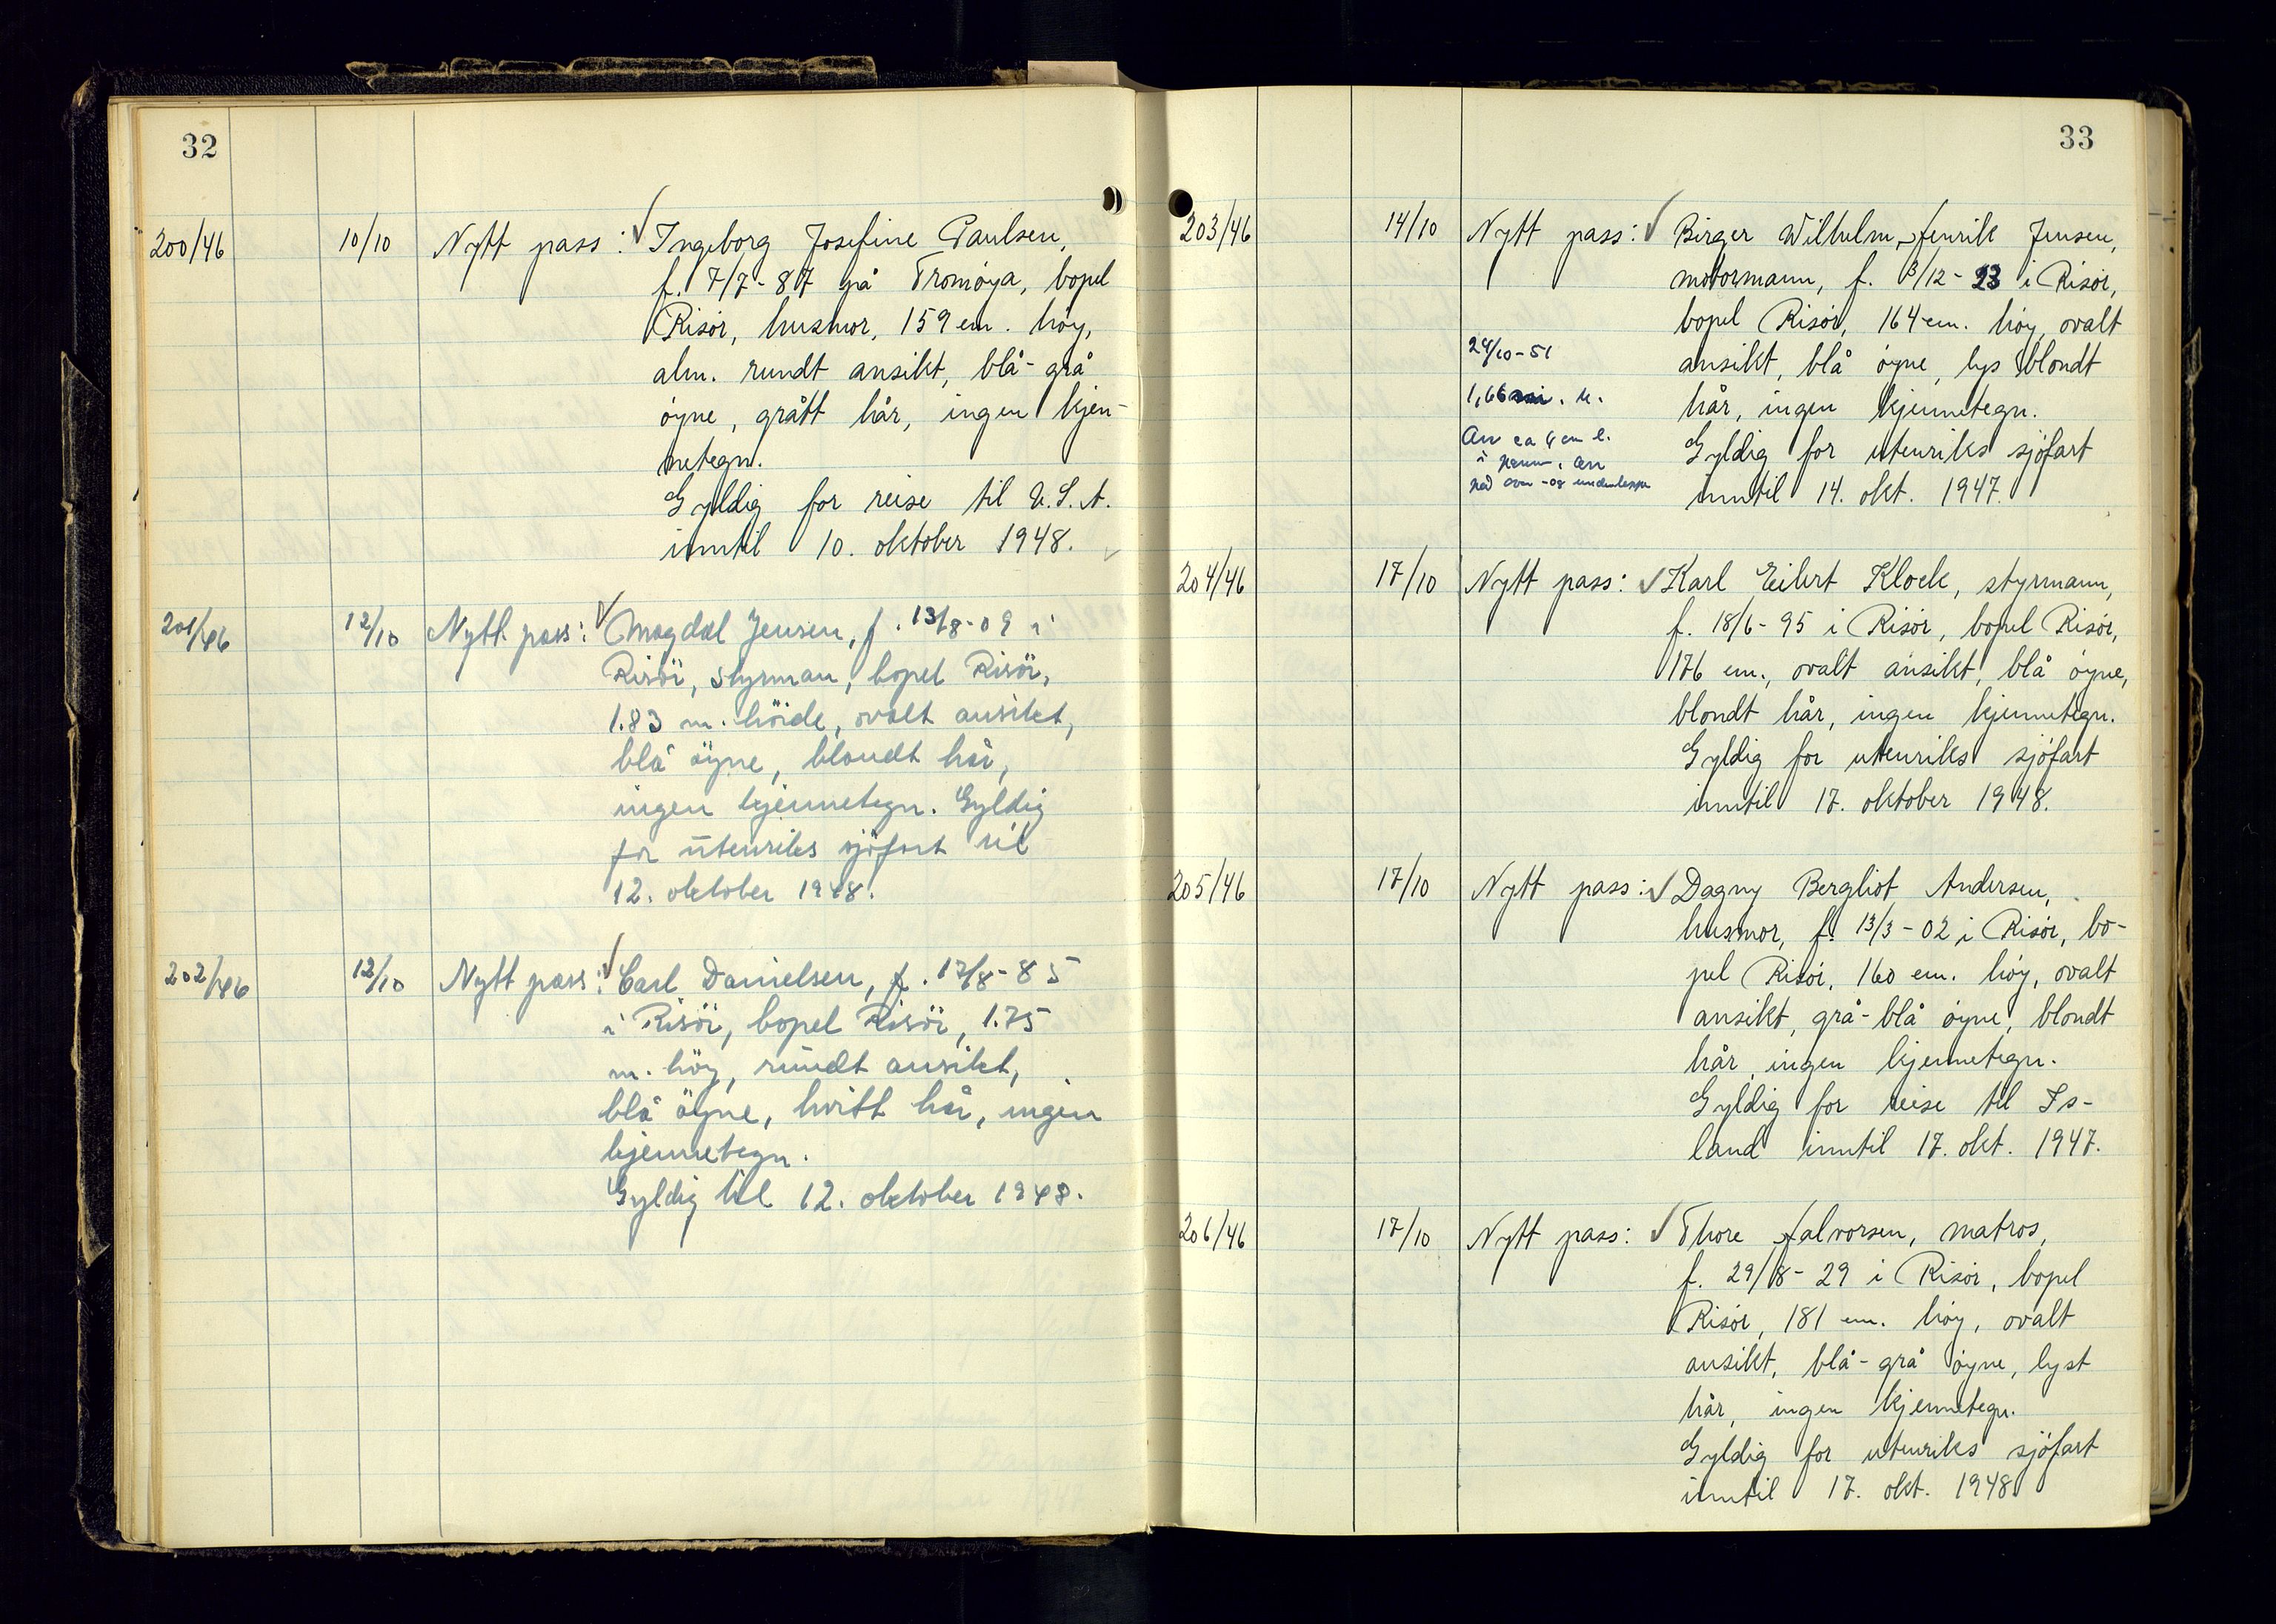 32
200/46 10/10 Nytt pass: Ingeborg Josefine Paulsen,
f. 7/7-87 på Tromøya, bopel
Risør, husmor, 159 cm. høy,
alm. rundt ansikt, blå-grå
øyne, grått hår, ingen kjen-
netegn.
Gyldig for reise til U.S.A.
inntil 10. oktober 1948.
201/46 12/10 Nytt pass: Magdal Jensen, f. 13/8-09 i
Risör, styrman, bopel Risör,
1.83 m. höide, ovalt ansikt,
blå öyne, blondt hår,
ingen kjennetegn. Gyldig
for utenriks sjöfart til
12. oktober 1948.
202/46 12/10 Nytt pass: Carl Danielsen, f. 17/8-85
i Risör, bopel Risör, 1.75
m. höy, rundt ansikt,
blå öyne, hvitt hår, ingen
kjennetegn.
Gyldig til 12. oktober 1948.
33
203/46 14/10 Nytt pass: Birger Wilhelm Henrik Jensen,
motormann, f. 3/12-23 i Risør,
bopel Risør, 164 cm. høy, ovalt
ansikt, blå øyne, lys blondt
hår, ingen kjennetegn.
Gyldig for utenriks sjøfart
inntil 14. okt. 1947.
24/10-51
1,66 . h.
Arr ca 4 cm l.
i pannen, arr
på over-og underleppe
204/46 17/10 Nytt pass: Karl Eilert Klock, styrmann,
f. 18/6-95 i Risør, bopel Risør,
176 cm., ovalt ansikt, blå øyne,
blondt hår, ingen kjennetegn.
Gyldig for utenriks sjøfart
inntil 17. oktober 1948.
205/46 17/10 Nytt pass: Dagny Bergliot Andersen,
husmor, f. 13/3-02 i Risør, bo-
pel Risør, 160 cm. høy, ovalt
ansikt, grå-blå øyne, blondt
hår, ingen kjennetegn.
Gyldig for reise til Is-
land inntil 17. okt. 1947.
206/46 17/10 Nytt pass: Thore Halvorsen, matros,
f. 29/8-29 i Risør, bopel
Risør, 181 cm. høy, ovalt
ansikt, blå-grå øyne, lyst
hår, ingen kjennetegn.
Gyldig for utenriks sjøfart
inntil 17. okt. 1948